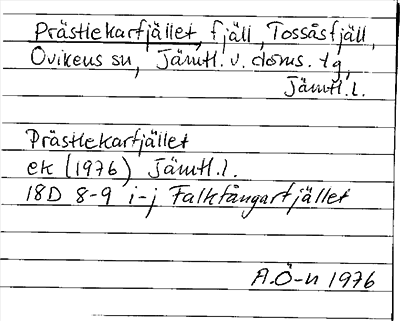 Prästlekarfjället, fjäll, Tossåsfjäll,
Ovikens sn, Jämtl. v. doms. tg,
Jämtl.l.
Prästlekarfjället
ek (1976) Jämtl.l.
18D 8-9 i-j Falkfångarfjället
A.Ö-n 1976